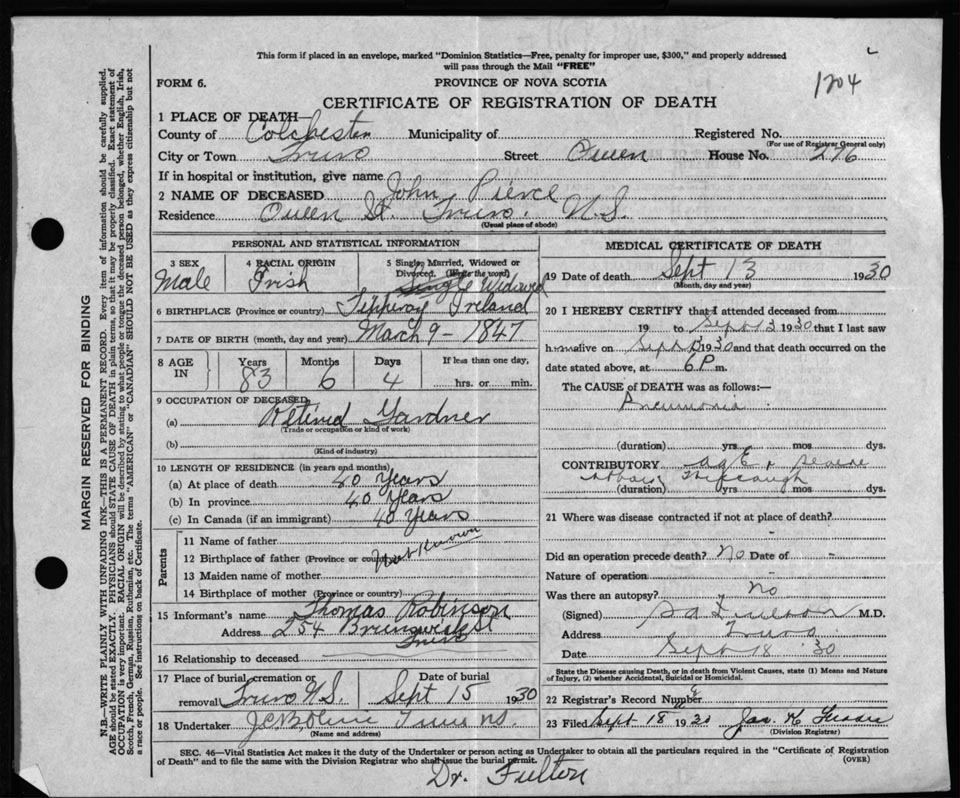 This form if placed in an envelope, marked "Dominion Statistics—Free, penalty for improper use, $300," and properly addressed
will pass through the Mail "FREE"
1204
FORM 6.
PROVINCE OF NOVA SCOTIA
CERTIFICATE OF REGISTRATION OF DEATH
1 PLACE OF DEATH—
County of Colchester Municipality of Registered No.
(For use of Registrar General only)
City or Town Truro Street Queen House No. 276
If in hospital or institution, give name
2 NAME OF DECEASED John Pierce
Residence Queen St. Truro. N.S.
(Usual place of abode)
PERSONAL AND STATISTICAL INFORMATION
3 SEX
Male
4 RACIAL ORIGIN
Irish
5 Single, Married, Widowed or
Divorced. (Write the word)
Single Widowed
6 BIRTHPLACE (Province or country) Ireland
7 DATE OF BIRTH (month, day and year) March 9 - 1847
8 AGE IN
Years Months Days If less than one day,
83 6 4 hrs. or min.
9 OCCUPATION OF DECEASED
(a) Retired Gardner
(Trade or occupation or kind of work)
(b)
(Kind of industry)
10 LENGTH OF RESIDENCE (in years and months)
(a) At place of death 40 Years
(b) In province 40 Years
(c) In Canada (if an immigrant) 40 Years
Parents
11 Name of father
12 Birthplace of father (Province or country) Not Known
13 Maiden name of mother
14 Birthplace of mother (Province or country)
15 Informant's name Thomas Robinson
Address 254 Brunswick St
Truro
16 Relationship to deceased
17 Place of burial, cremation or
removal Truro N.S.
Date of burial
Sept 15 1930
18 Undertaker Truro N.S.
(Name and address)
MEDICAL CERTIFICATE OF DEATH
19 Date of death Sept 13 1930
(Month, day and year)
20 I HEREBY CERTIFY that I attended deceased from
19 to Sept 13 1930 that I last saw
him alive on Sept 13 1930 and that death occurred on the
date stated above, at 6 P m.
The CAUSE of DEATH was as follows:—
Pneumonia
(duration) yrs. mos dys.
CONTRIBUTORY age & severe
(duration) yrs. mos dys.
21 Where was disease contracted if not at place of death?
Did an operation precede death? No Date of -
Nature of operation -
Was there an autopsy? No
(Signed) Fulton M.D.
Address Truro
Date Sept 18 '30
State the Disease causing Death, or in death from Violent Causes, state (1) Means and Nature
of Injury, (2) whether Accidental, Suicidal or Homicidal.
22 Registrar's Record Number
23 Filed Sept 18 1930 Jas. K
(Division Registrar)
SEC. 46—Vital Statistics Act makes it the duty of the Undertaker or person acting as Undertaker to obtain all the particulars required in the "Certificate of Registration
of Death" and to file the same with the Division Registrar who shall issue the burial permit.
(OVER)
Dr. Fulton
MARGIN RESERVED FOR BINDING
N.B.—WRITE PLAINLY WITH UNFADING INK—THIS IS A PERMANENT RECORD. Every item of information should be carefully supplied.
AGE should be stated EXACTLY. PHYSICIANS should STATE CAUSE OF DEATH in plain terms, so that it may be properly classified. Exact statement of
OCCUPATION is very important. RACIAL ORIGIN will be described by stating to what people or tongue the deceased person belonged, whether English, Irish,
Scotch, French, German, Russian, Ruthenian, etc. The terms "AMERICAN" or "CANADIAN" SHOULD NOT BE USED as they express citizenship but not
a race or people. See instructions on back of Certificate.